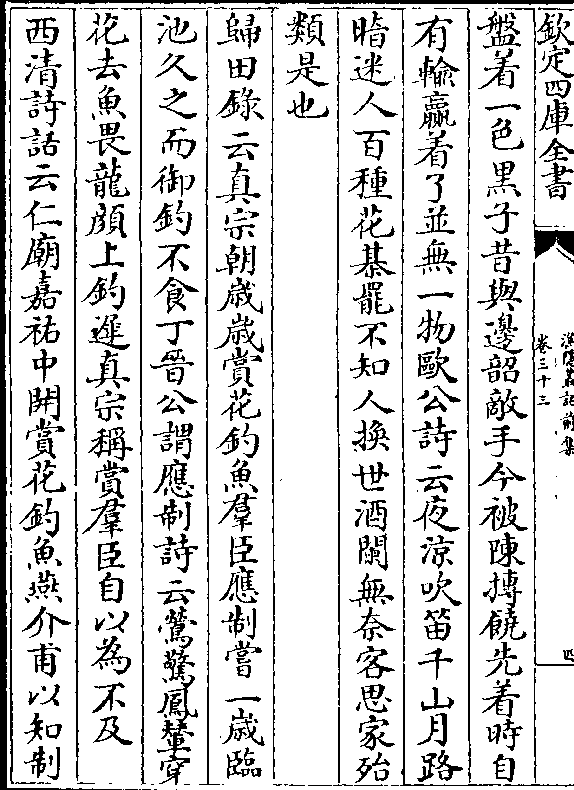 欽定四庫全書
漁隱叢話前集
卷三十三
四
盤着一色黒子昔與邊韶敵手今被陳摶饒先着時自
有輸贏着了並無一物歐公詩云夜涼吹笛千山月路
暗迷人百種花棊罷不知人換世酒闌無奈客思家殆
類是也
歸田錄云真宗朝歲歲賞花釣魚羣臣應制嘗一歲臨
池久之而御釣不食丁晉公謂應制詩云鶯驚鳳輦穿
花去魚畏龍顔上釣遲真宗稱賞羣臣自以為不及
西清詩話云仁廟嘉祐中開賞花釣魚燕介甫以知制